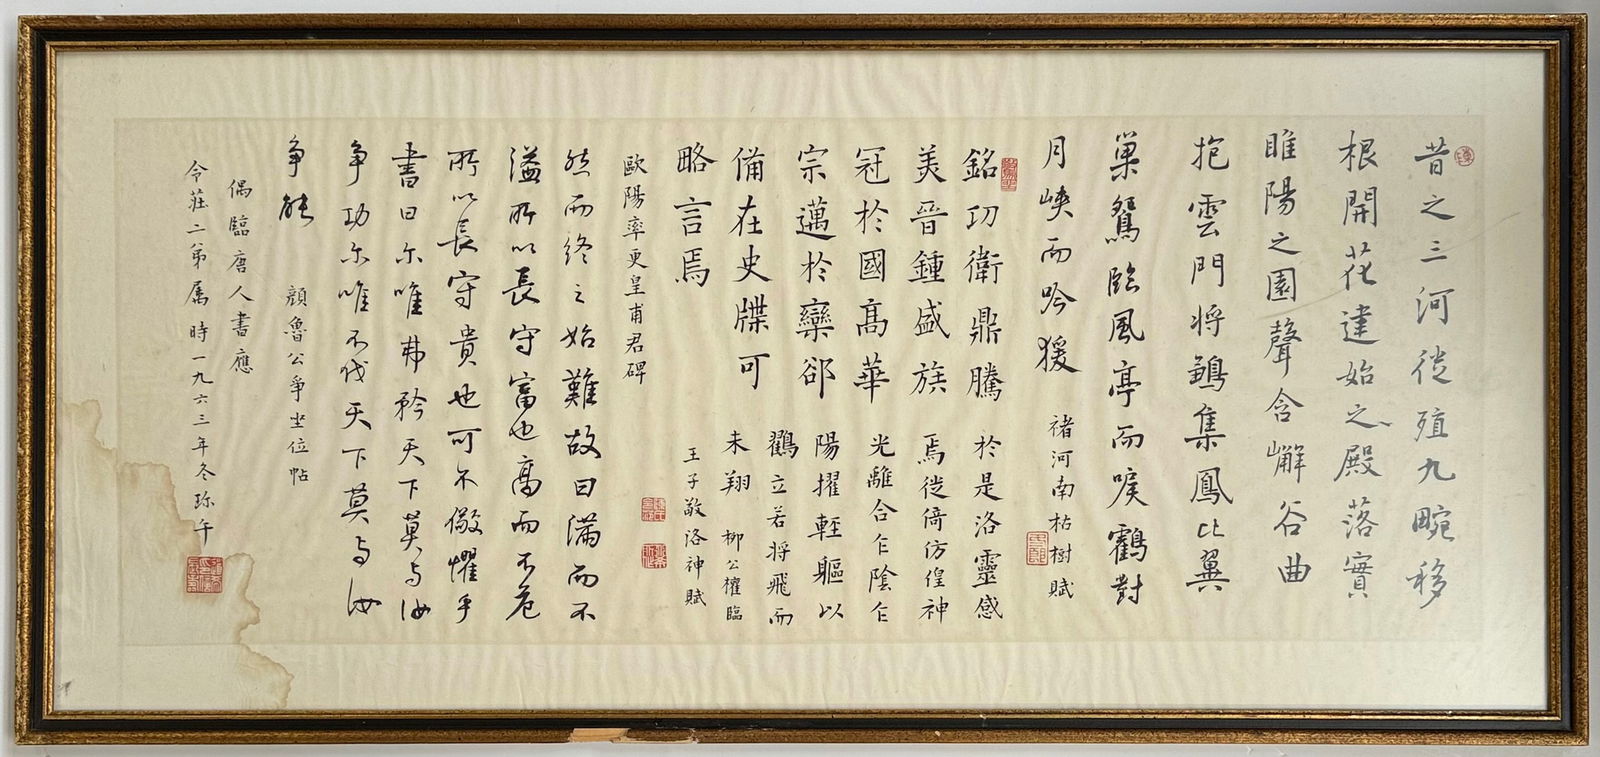 昔之三河徙殖九畹移
根開花建始之殿落實
睢陽之園聲含嶰谷曲
抱雲門將鶵集鳳比翼
巢鴛臨風亭而唳鶴對
月峽而吟猨
褚河南枯樹賦
銘功衛鼎騰
美晉鍾盛族
冠於國高華
宗邁於欒郤
備在史牒可
略言焉
歐陽率更皇甫君碑
於是洛靈感
焉徙倚仿偟神
光離合乍陰乍
陽擢輕軀以
鸖立若將飛而
未翔
柳公權臨
王子敬洛神賦
然而終之始難故曰滿而不
溢所以長守富也高而不危
所以長守貴也可不儆懼乎
書曰尔唯弗矜天下莫与汝
争功尔唯不伐天下莫与汝
争能
顔魯公爭坐位帖
偶臨唐人書應
令莊二弟属時一九六三年冬珎午